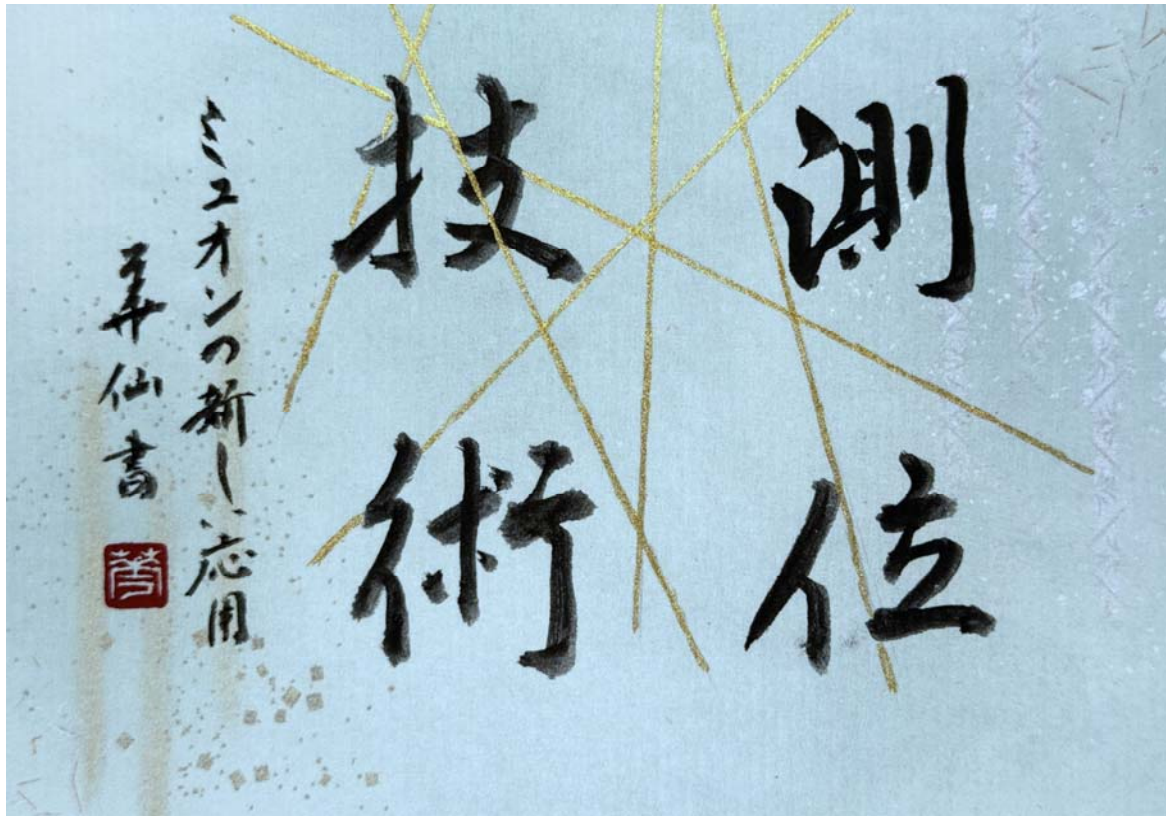 測位
技術
ミュオンの新しい応用
華仙書
華